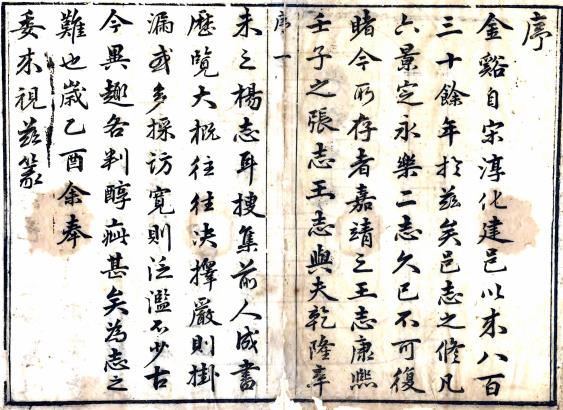 序
金谿自宋淳化建邑以來八百
三十餘年於茲矣邑志之修凡
六景定永樂二志久已不可復
睹今所存者嘉靖之王志康熙
壬子之張志王志與夫乾隆辛
序 一
未之楊志耳搜集前人成書
歷覽大概往往決擇嚴則掛
漏或多採訪寬則泛濫不少古
今異趣各判醇疵甚矣為志之
難也歲乙酉余奉
委來視茲篆